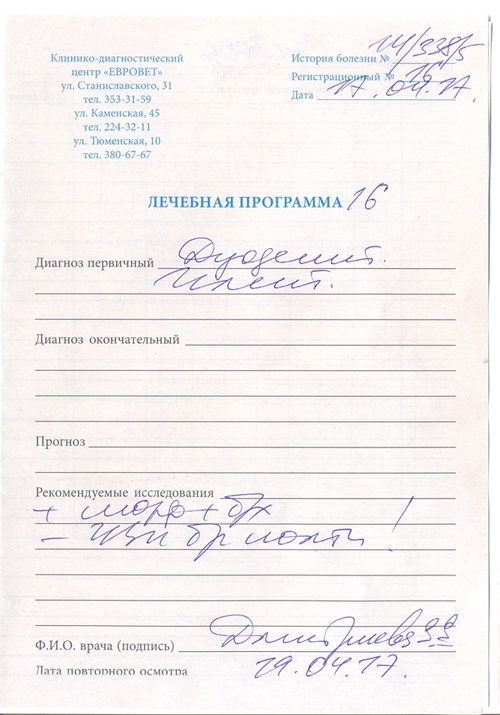 Клинико-диагностический
центр «ЕВРОВЕТ»
ул. Станиславского, 31
тел. 353-31-59
ул. Каменская, 45
тел. 224-32-11
ул. Тюменская, 10
тел. 380-67-67
История болезни № 14/338/5
Регистрационный № 16
Дата 17.04.17.
ЛЕЧЕБНАЯ ПРОГРАММА 16
Диагноз первичный Дуоденит.
Илеит.
Диагноз окончательный
Прогноз
Рекомендуемые исследования
+ морф + бх
- УЗИ бр полости!
Ф.И.О. врача (подпись) Дмитриева
Дата повторного осмотра 19.04.17.